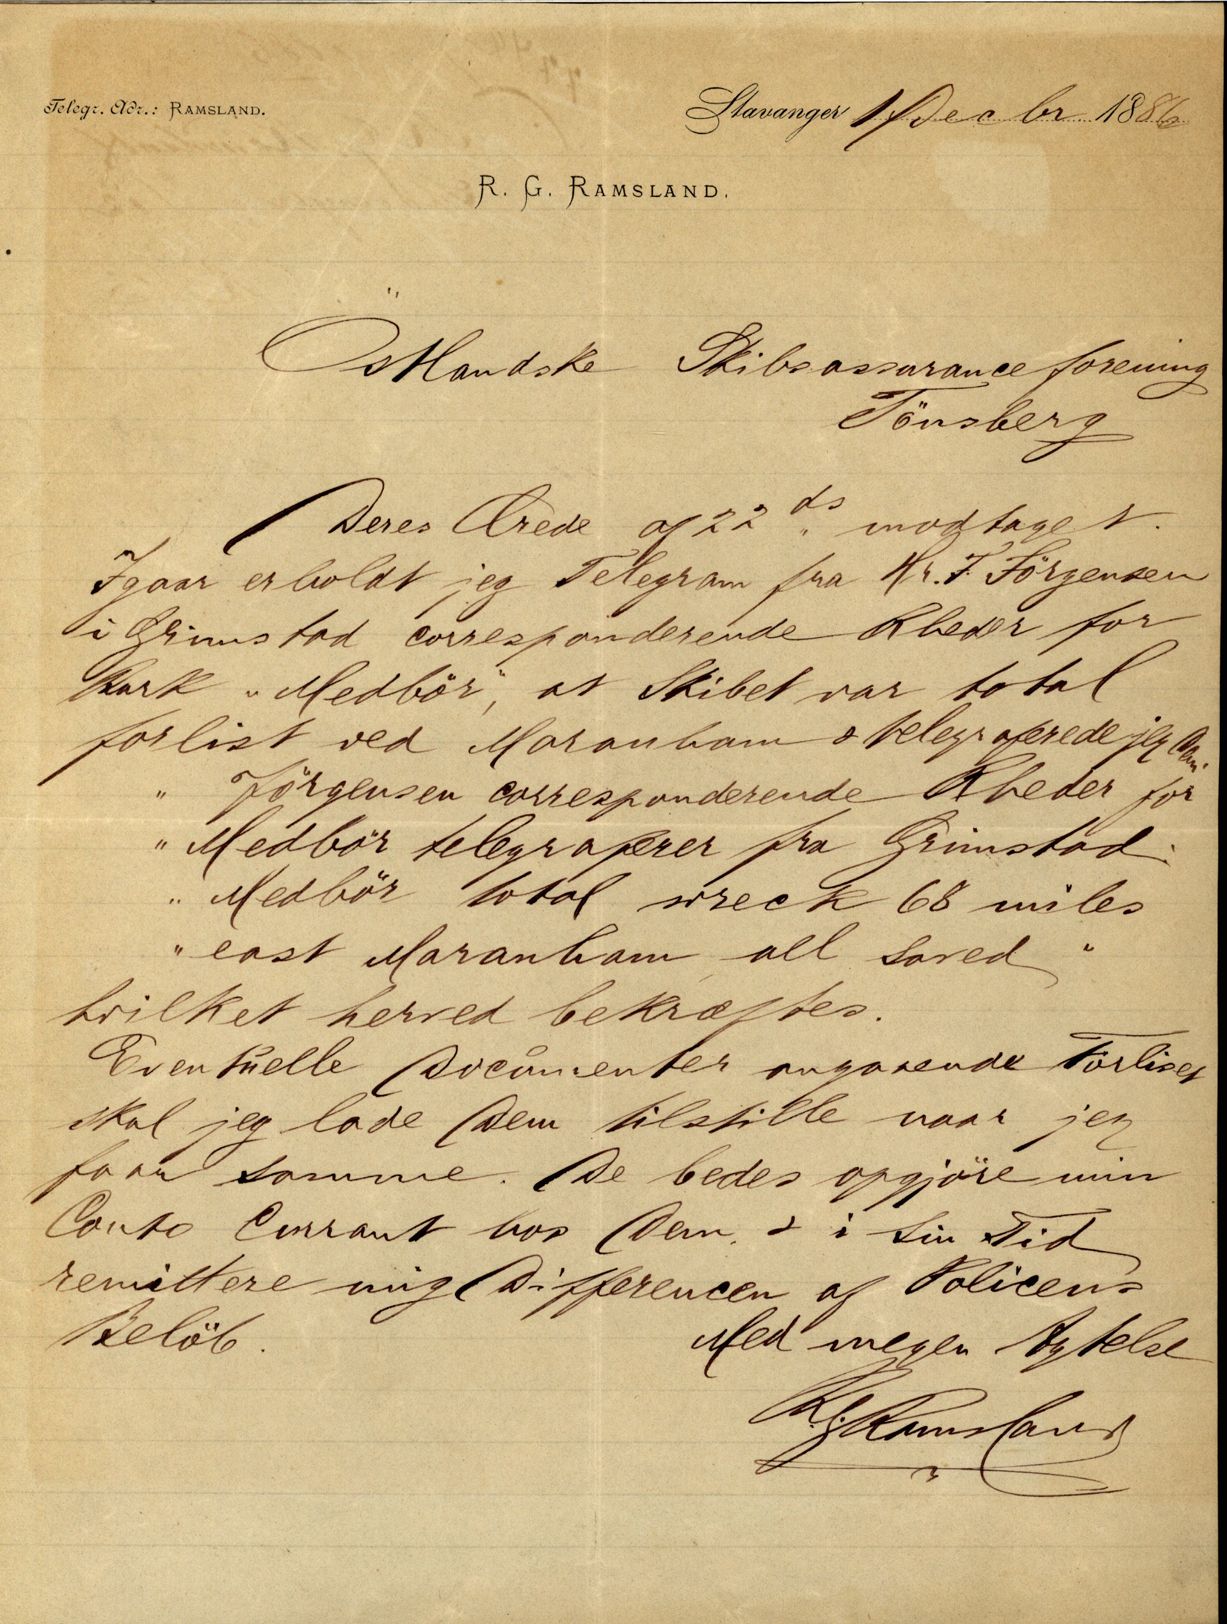 Telegr. Adr.: RAMSLAND.
Stavanger 1 Decbr. 1886
R. G. RAMSLAND.
Östlandske Skibsassuranceforening
Tönsberg
Deres Ærede af 22 ds modtaget.
Igaar erholdt jeg Telegram fra Hr. F. Jörgensen
i Grimstad corresponderende Rheder for
Bark "Medbör", at Skibet var total
forlist ved Maranham & telegraferede jeg Dem
" Jörgensen corresponderende Rheder for
" Medbör telegraferer fra Grimstad:
" Medbör total wreck 68 miles
" east Maranham all saved "
hvilket herved bekræftes.
Eventuelle Documenter angaaende Forliset
skal jeg lade Dem tilstille naar jeg
faar samme. De bedes opgjöre min
Conto Currant hos Dem, & i sin Tid
remittere mig Differencen af Policens
Belöb.
Med megen Agtelse
R. G. Ramsland